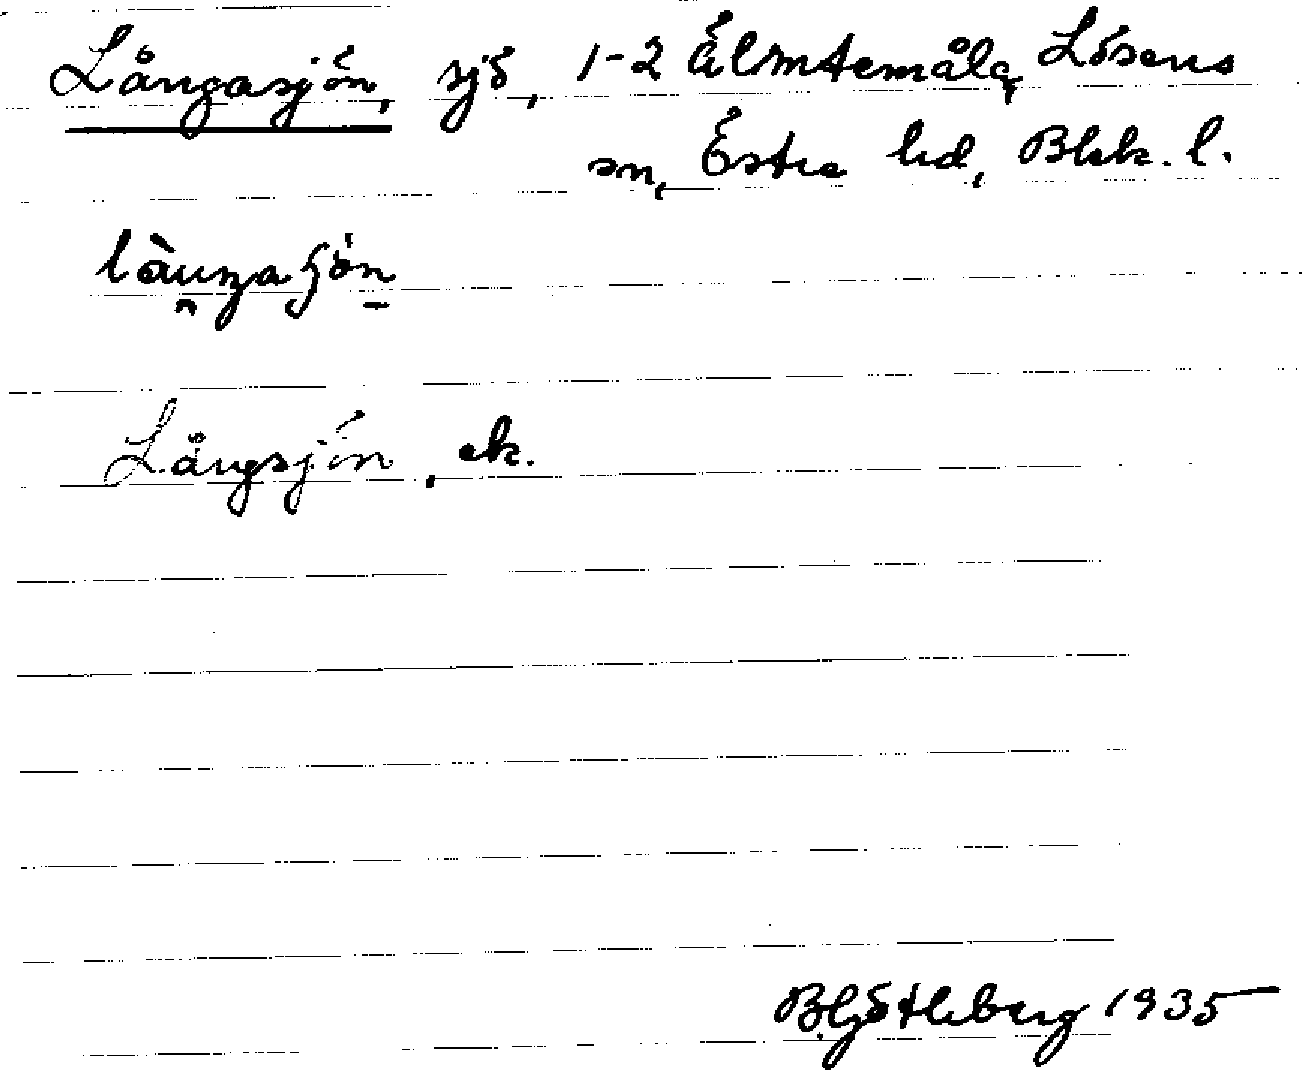 Långasjön, sjö, 1-2 Älmtemåla, Lösens
sn, Östra hd, Blek. l.
Långsjön, ek.
1935